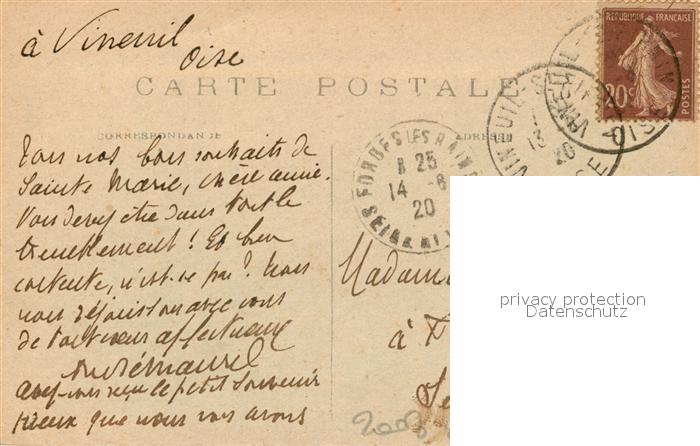 à Vineuil
Oise
CARTE POSTALE
CORRESPONDANCE
ADRESSE
REPUBLIQUE FRANÇAISE
20c
POSTES
VINEUIL
13
20
OISE
FORGES LES BAINS
8 25
14 -8
20
Tous nos bons souhaits de
Sainte Marie, chère amie.
Vous devez être dans tout le
! Et bien
contente, n'est-ce pas? Nous
nous réjouissons avec vous
de tout cœur affectueux
avez-vous reçu le petit souvenir
pieux que nous vous avons
Madame
à F
Se
2008
privacy protection
Datenschutz